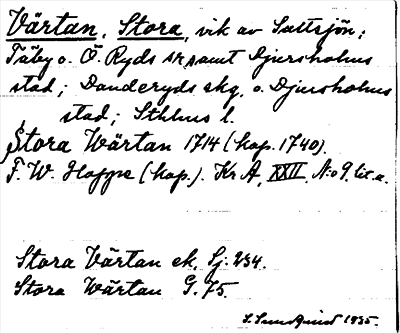 Värtan, Stora, vik av Saltsjön;
Täby o. Ö. Ryds sk, samt Djursholms
stad; Danderyds skg, o. Djursholms
stad; Sthlms l.
Stora Wärtan 1714 (kop. 1740).
F. W. Hoppe (kop.). Kr A, XXII, No 9 lit. a.
Stora Värtan ek. Sj. 234.
Stora Wärtan G. 75.
S. Sundquist 1935.